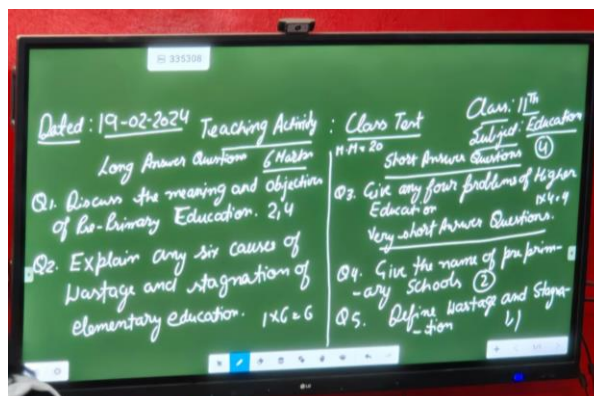 335308
Dated: 19-02-2024 Teaching Activity : Class Test
Class: 11Th
Subject: Education
Long Answer Questions 6 Marks
Q1. Discuss the meaning and objectives
of Pre-Primary Education. 2,4
Q2. Explain any six causes of
Wastage and stagnation of
elementary education. 1x6=6
M.M=20
Short Answer Questions 4
Q3. Give any four problems of Higher
Education 1x4=4
Very short Answer Questions.
Q4. Give the name of preprim-
-ary Schools 2
Q5. Define Wastage and Stagna-
-tion 1,1
LG